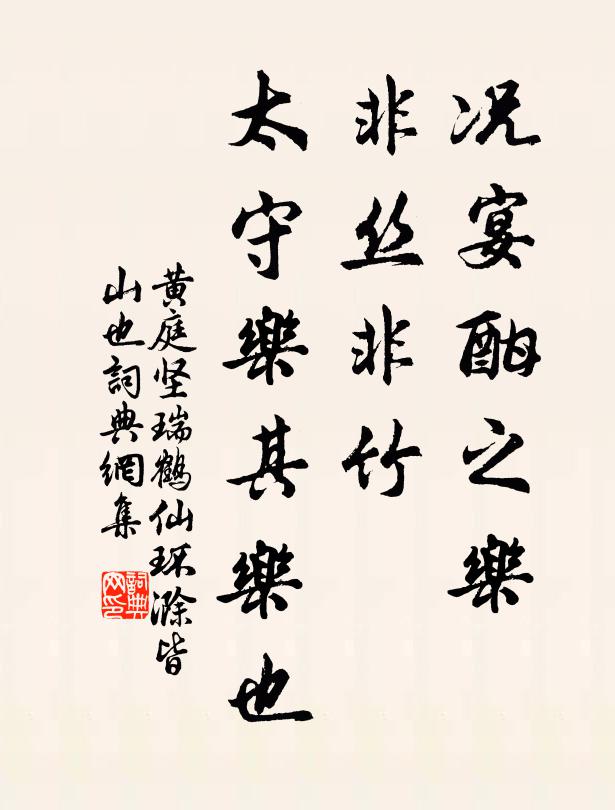 况宴酣之樂
非丝非竹
太守樂其樂也
黄庭坚瑞鹤仙环滁皆
山也詞典網集
詞典
网印